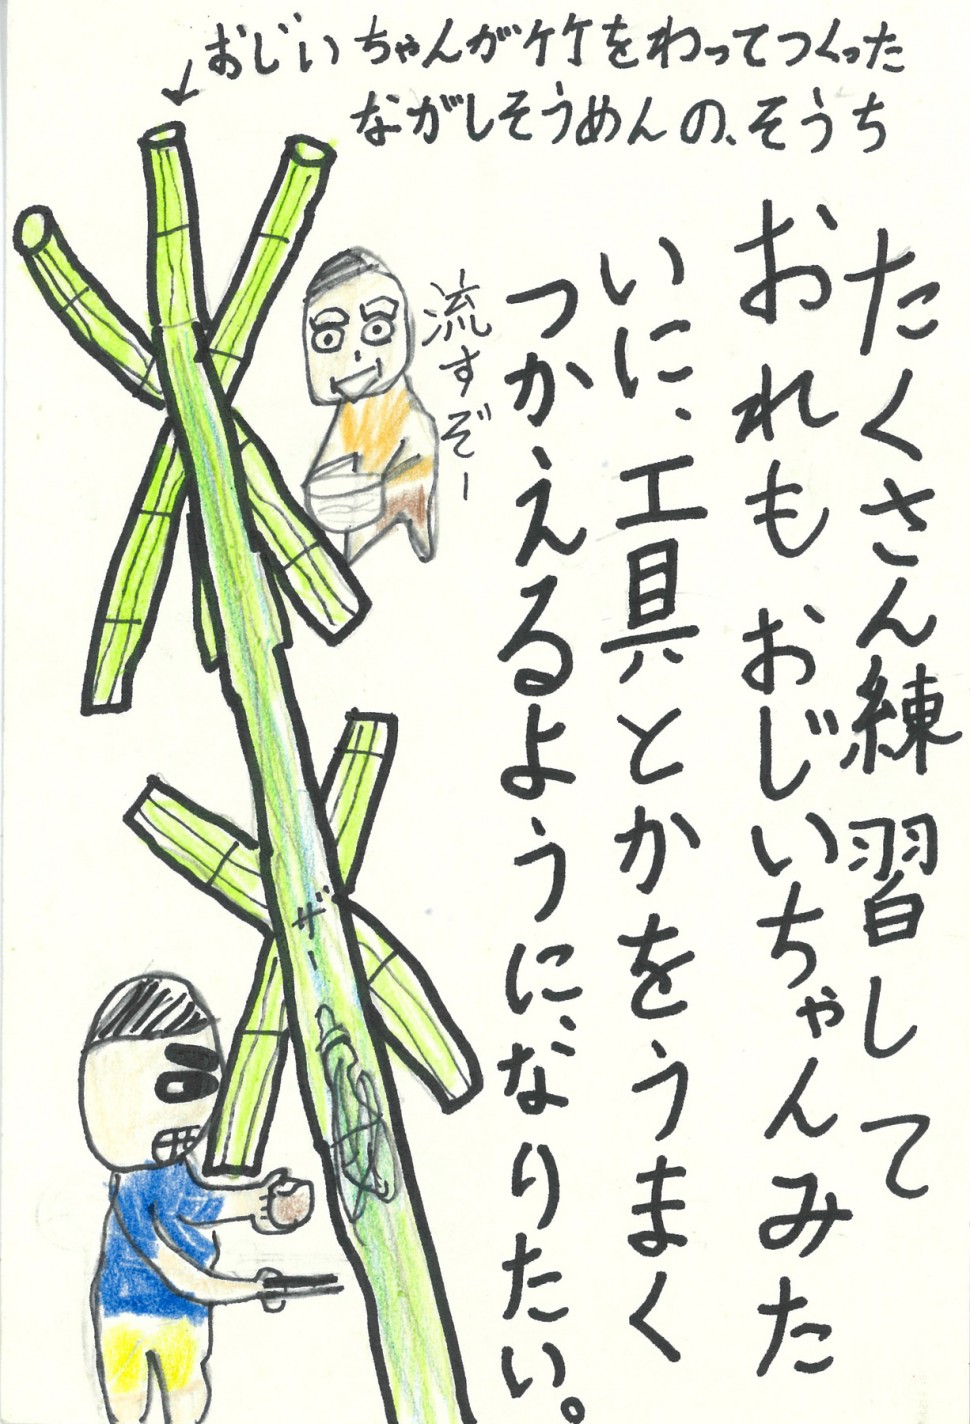 おじいちゃんが竹をわってつくった
ながしそうめんの、そうち
たくさん練習して
おれもおじいちゃんみた
いに、工具とかをうまく
つかえるようになりたい。
流すぞー
ザー